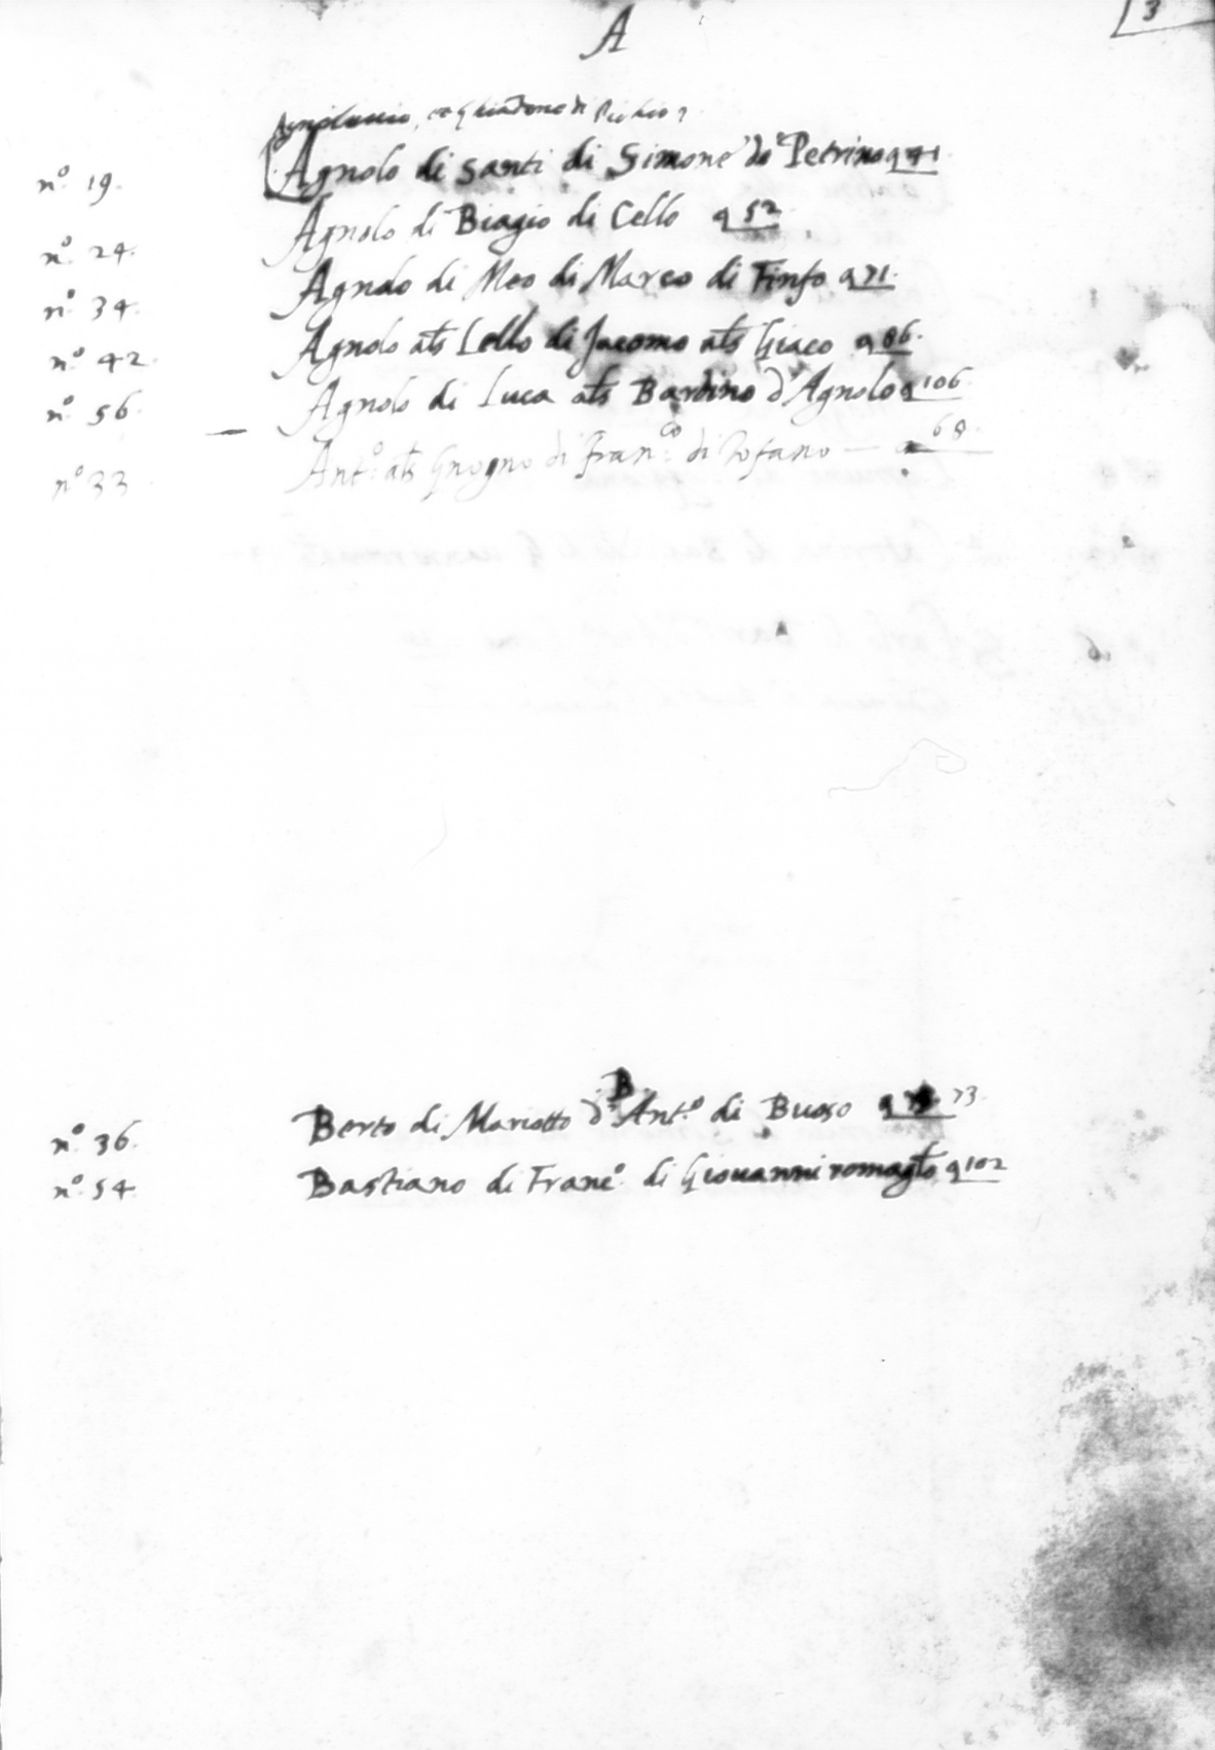 3
A
nº 19. Agnolo di Santi di Simone do Petrino a 41
nº 24. Agnolo di Biagio di Cello a 52
nº 34. Agnolo di Meo di Marco di Finfo a 71.
nº 42. Agnolo als Lello di Jacomo als Giaco a 86.
nº 56. Agnolo di Luca als Bardino d'Agnolo a 106
nº 33 Antº als Gnogno di Franco di Tofano — a 68.
B.
nº 36. Berto di Mariotto d' Antº di Buoso a 73.
nº 54. Bastiano di Francº di Giouanni romagto a 102